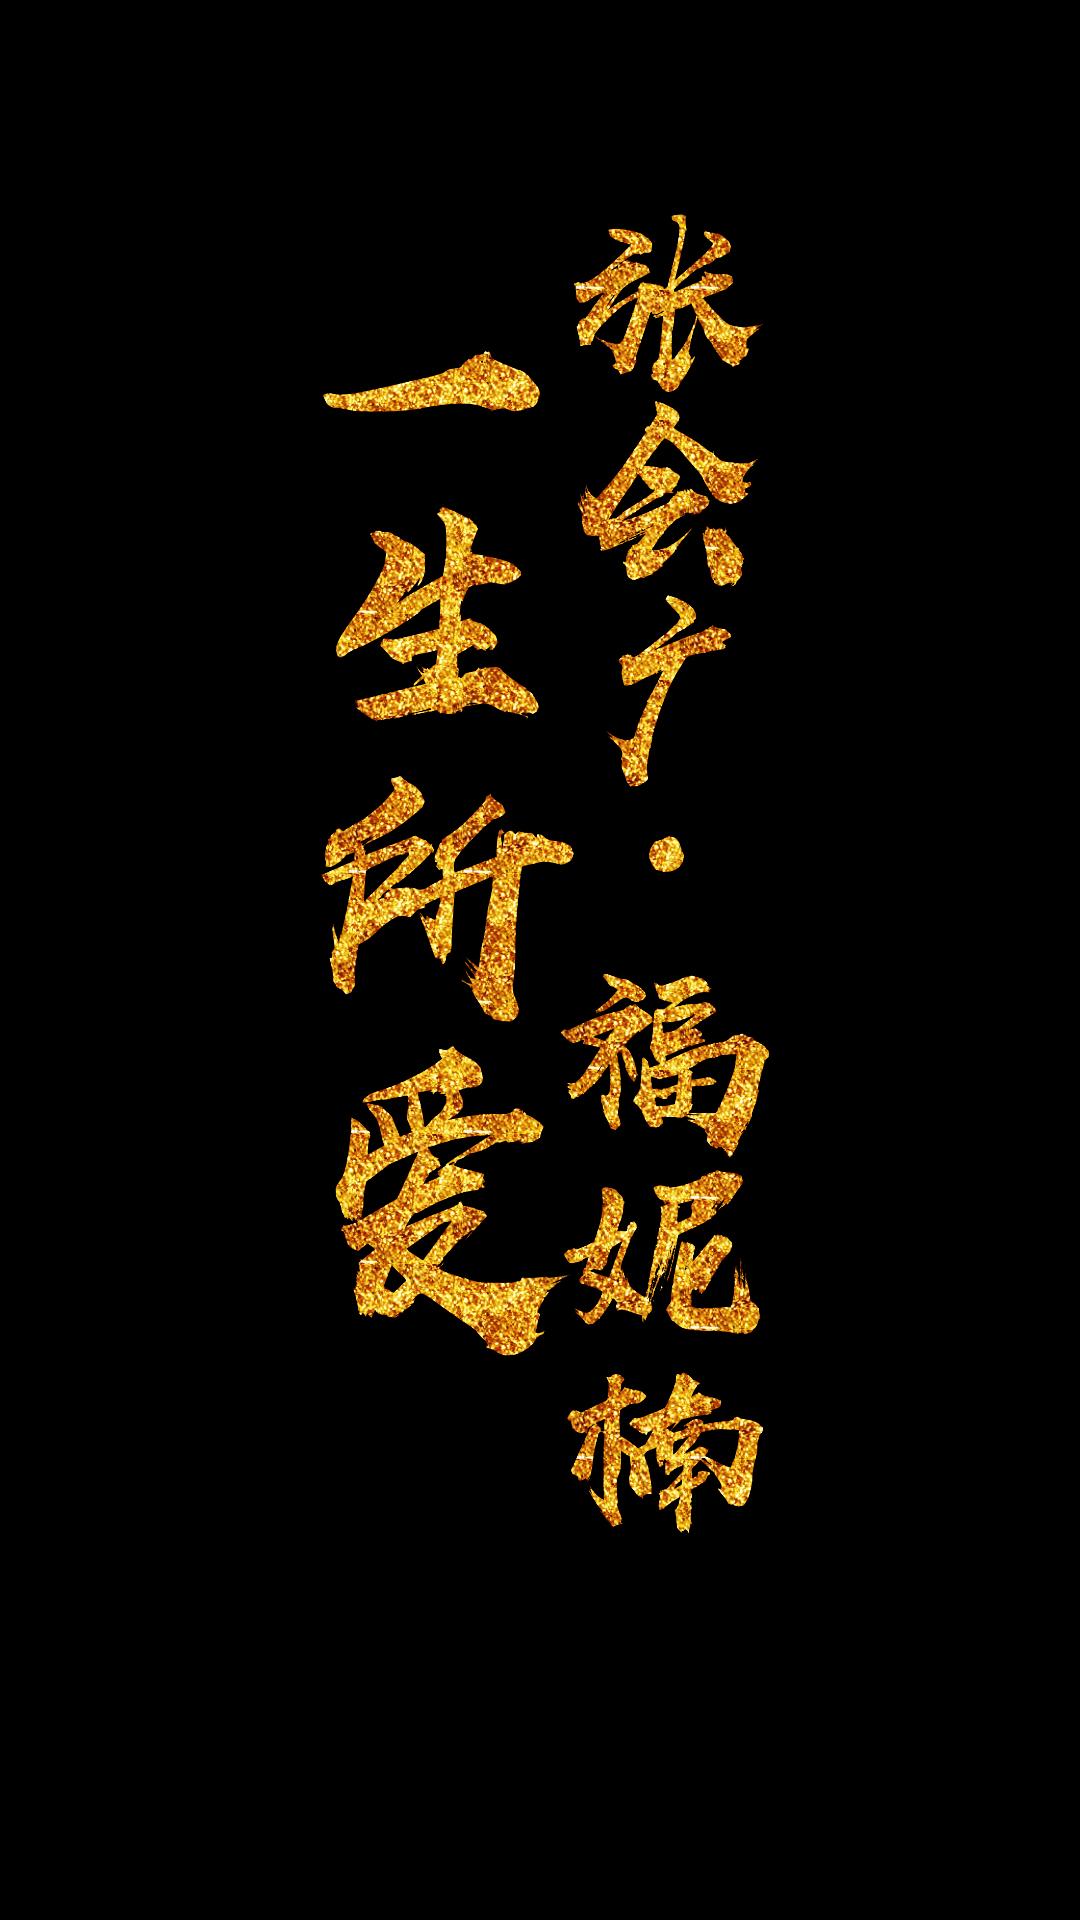 张会广·福妮楠
一生所爱